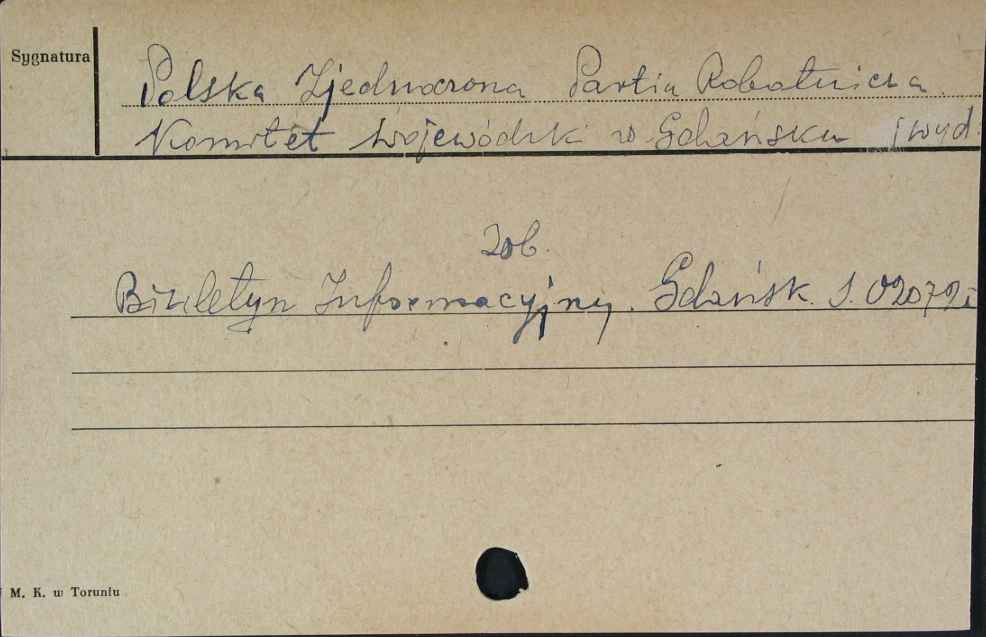 Sygnatura
Polska Zjednoczona Partia Robotnicza.
Komitet Wojewódzki w Gdańsku [wyd.
Zob.
Biuletyn Informacyjny. Gdańsk. S. 02079
M. K. w Toruniu